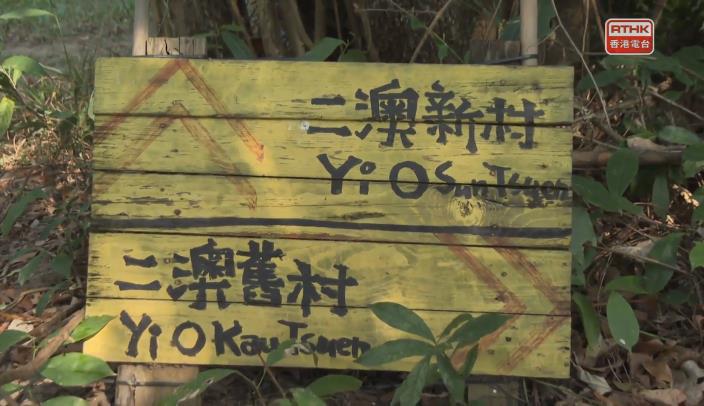 RTHK
香港電台
二澳新村
Yi O Sun Tsuen
二澳舊村
Yi O Kau Tsuen